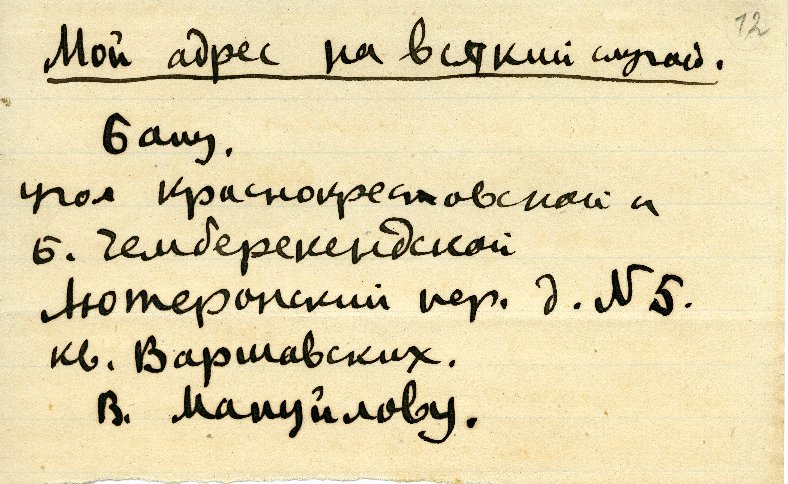 12
Мой адрес на всякий случай.
Баку.
угол Краснокрестовской и
Б. Чемберекендской
Лютеранский пер. д. № 5.
кв. Варшавских.
В. Мануйлову.